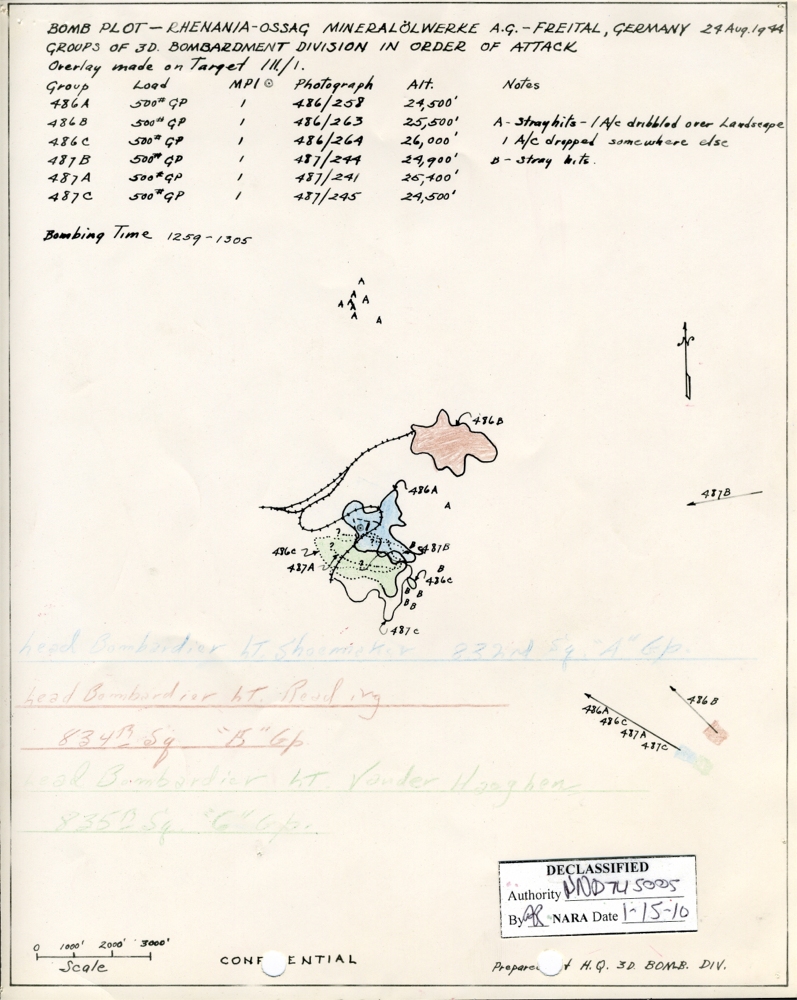 BOMB PLOT — RHENANIA-OSSAG MINERALÖLWERKE A.G. — FREITAL, GERMANY 24 Aug. 1944
GROUPS OF 3D. BOMBARDMENT DIVISION IN ORDER OF ATTACK
Overlay made on Target III/1.
Group Load MPI ⊙ Photograph Alt. Notes
486A 500# GP 1 486/258 24,500'
486B 500# GP 1 486/263 25,500' A - Stray hits - 1 A/c dribbled over Landscape
486C 500# GP 1 486/264 26,000' 1 A/c dropped somewhere else
487B 500# GP 1 487/244 24,900' B - Stray hits.
487A 500# GP 1 487/241 25,400'
487C 500# GP 1 487/245 24,500'
Bombing Time 1259-1305
A
A
A A
A A
A
A
N
486B
486A
487B
A
?
486C ? ? B 487B
487A ? B
486C
B B
B B
487C
Lead Bombardier Lt. Shoemaker 832nd Sq. "A" Gp.
Lead Bombardier Lt. Reading
834th Sq "B" Gp
Lead Bombardier Lt. Vander Haeghen
835th Sq. "C" Gp.
486B
486A
486C
487A
487C
DECLASSIFIED
Authority NND 745005
By NARA Date 1-15-10
0 1000' 2000' 3000'
Scale
CONF ENTIAL
Prepare t H.Q. 3D. BOMB. DIV.